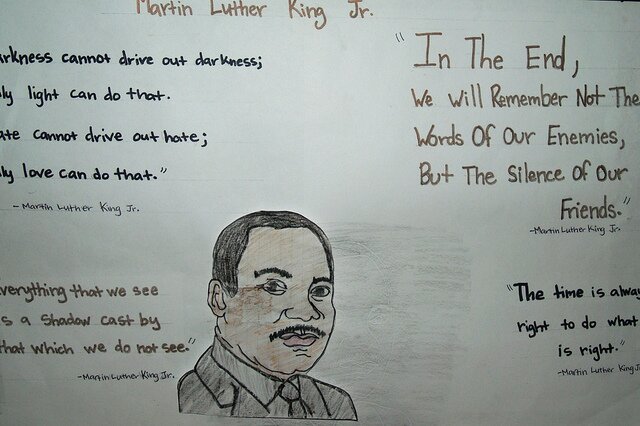 Martin Luther King Jr.
arkness cannot drive out darkness;
ly light can do that.
ate cannot drive out hate;
ly love can do that."
- Martin Luther King Jr.
"In The End,
We Will Remember Not The
Words Of Our Enemies,
But The Silence Of Our
Friends."
-Martin Luther King Jr.
verything that we see
s a Shadow cast by
that which we do not see."
-Martin Luther King Jr.
"The time is alway
right to do what
is right."
-Martin Luther King Jr